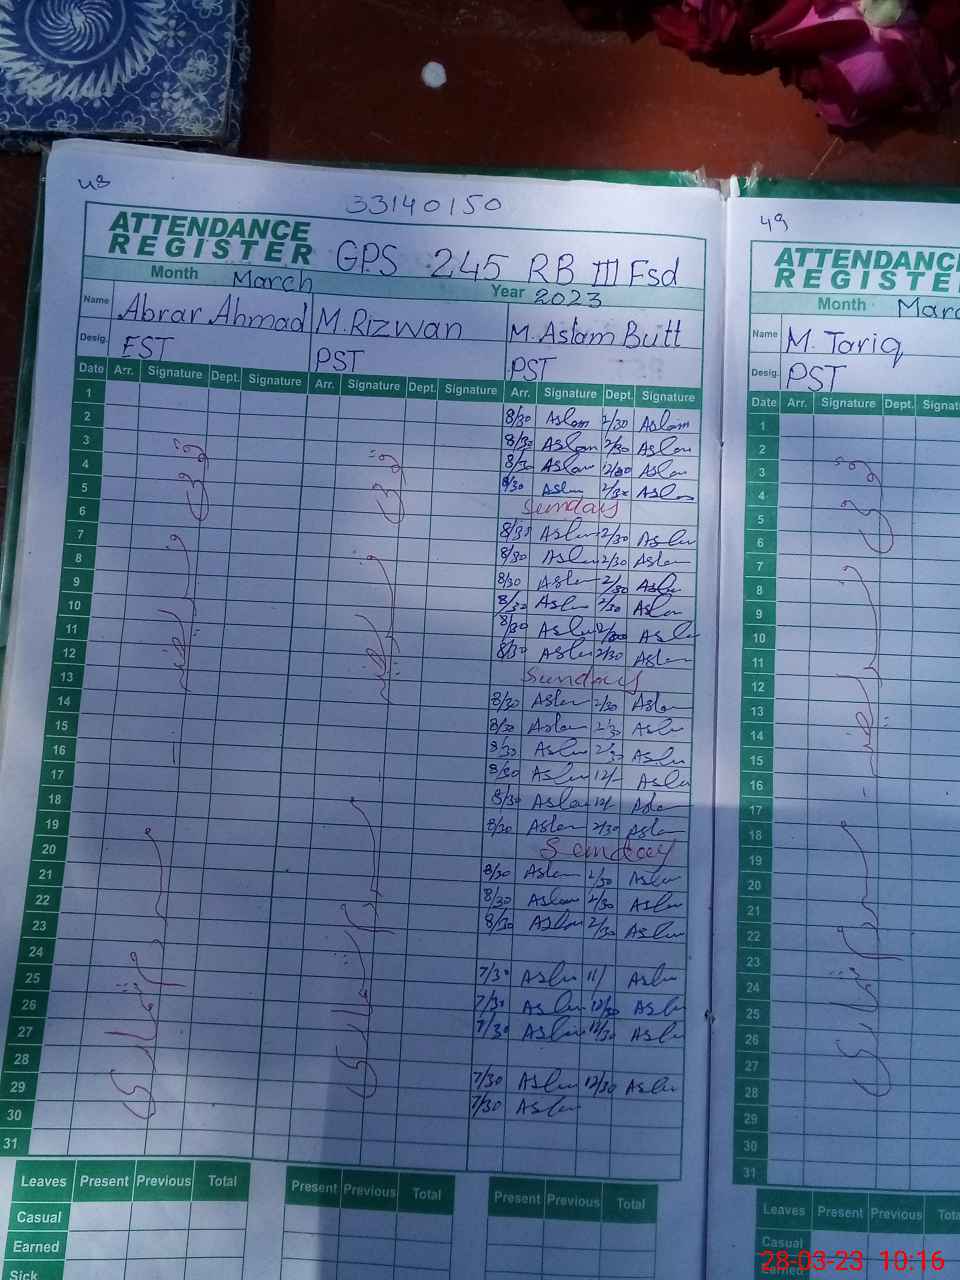 48
33140150
ATTENDANCE REGISTER GPS 245 RB III Fsd
Month March Year 2023
Name Abrar Ahmad M.Rizwan M.Aslam Butt
Desig. EST PST PST
Date Arr. Signature Dept. Signature Arr. Signature Dept. Signature Arr. Signature Dept. Signature
1
2 8/30 Aslam 2/30 Aslam
3 8/30 Aslam 2/30 Aslam
4 8/30 Aslam Aslam
5 8/30 Aslam 2/30 Aslam
6 Sunday
7 8/30 Aslam 2/30 Aslam
8 8/30 Aslam 2/30 Aslam
9 8/30 Aslam 2/30 Aslam
10 8/30 Aslam 2/30 Aslam
11 8/30 Aslam Aslam
12 8/30 Aslam 2/30 Aslam
13 Sunday
14 8/30 Aslam 2/30 Aslam
15 8/30 Aslam 2/30 Aslam
16 8/30 Aslam 2/30 Aslam
17 8/30 Aslam 12/- Aslam
18 8/30 Aslam 12/- Aslam
19 8/30 Aslam 2/30 Aslam
20 Sunday
21 8/30 Aslam 2/30 Aslam
22 8/30 Aslam 2/30 Aslam
23 8/30 Aslam 2/30 Aslam
24
25 7/30 Aslam 11/ Aslam
26 7/30 Aslam 12/30 Aslam
27 7/30 Aslam 12/30 Aslam
28
29 7/30 Aslam 12/30 Aslam
30 7/30 Aslam
31
Leaves Present Previous Total Present Previous Total Present Previous Total
Casual
Earned
Sick
49
ATTENDANC
REGISTE
Month Marc
Name M.Tariq
Desig. PST
Date Arr. Signature Dept. Signat
1
2
3
4
5
6
7
8
9
10
11
12
13
14
15
16
17
18
19
20
21
22
23
24
25
26
27
28
29
30
31
Leaves Present Previous Tota
Casual
Earned
28-03-23 10:16